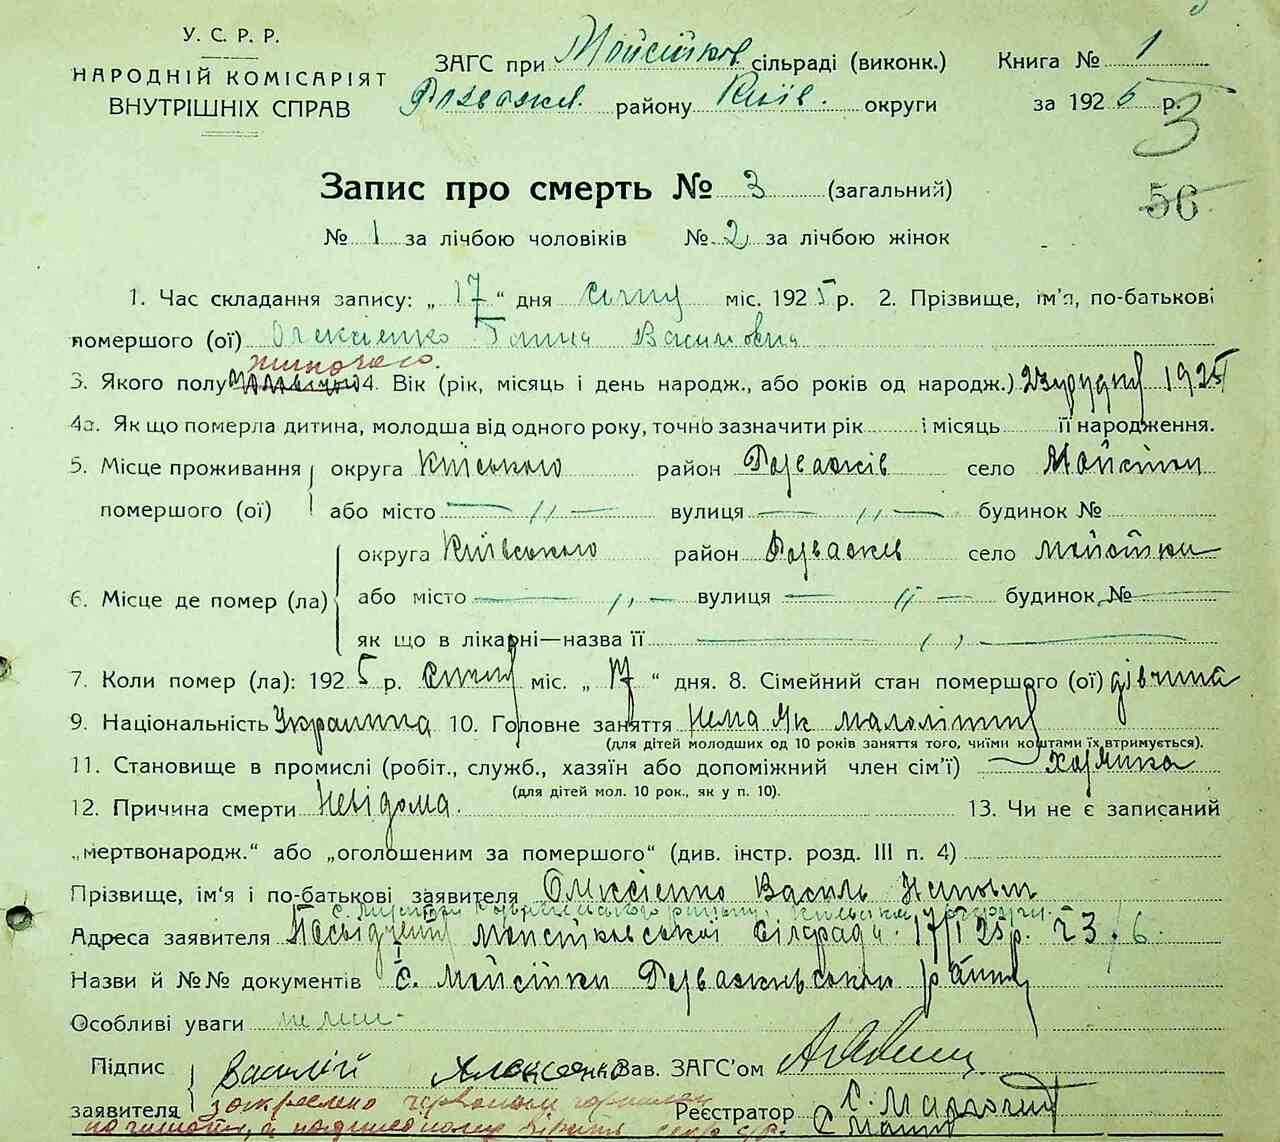 У. С. Р. Р.
НАРОДНІЙ КОМІСАРІЯТ
ВНУТРІШНІХ СПРАВ
ЗАГС при Мойсійков. сільраді (виконк.) Книга № 1
Розважев. району Київ. округи за 1925 р.
3
56
Запис про смерть № 3 (загальний)
№ 1 за лічбою чоловіків № 2 за лічбою жінок
1. Час складання запису: „ 17 “ дня січня міс. 1925 р. 2. Прізвище, ім'я, по-батькові
помершого (ої) Олексієнко Ганна Василовна
жиночего
3. Якого полу 4. Вік (рік, місяць і день народж., або років од народж.) 23 грудня 1925
4а. Як що померла дитина, молодша від одного року, точно зазначити рік і місяць її народження.
5. Місце проживання округа Київського район Розважів село Мойсійки
помершого (ої) або місто — „ — вулиця — „ — будинок №
округа Київського район Розважев село Мойсійки
6. Місце де помер (ла) або місто — „ — вулиця — „ — будинок № —
як що в лікарні—назва її — „ —
7. Коли помер (ла): 1925 р. Січня міс. „ 17 “ дня. 8. Сімейний стан помершого (ої) дівчина
9. Національність Украинка 10. Головне заняття Нема як малолітня
(для дітей молодших од 10 років заняття того, чиїми коштами їх втримується).
11. Становище в промислі (робіт., служб., хазяїн або допоміжний член сім'ї)
(для дітей мол. 10 рок., як у п. 10).
12. Причина смерти Невідома. 13. Чи не є записаний
„мертвонародж.“ або „оголошеним за помершого“ (див. інстр. розд. III п. 4)
Прізвище, ім'я і по-батькові заявителя Олексієнко Василь
Адреса заявителя Посвідчення Мойсійковської сілради 17/I 25 р. № 3.
Назви й №№ документів с. Мойсійки району
Особливі уваги немає
Підпис Василій Алексеенко Зав. ЗАГС'ом
заявителя закреслено червоным Реєстратор С.